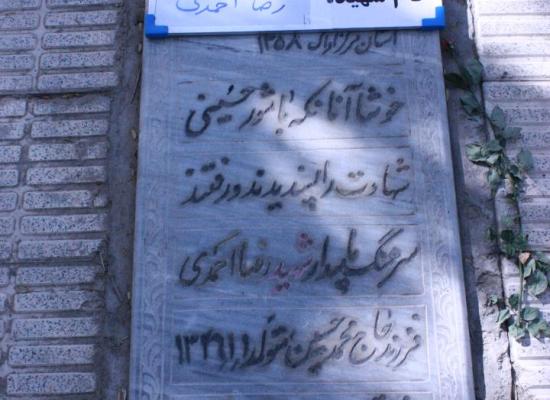 رضا احمدی
خوشا آنانکه با شور حسینی
شهادت را پسندیدند و رفتند
سرهنگ پاسدار شهید رضا احمدی
فرزند حاج محمدحسین متولد ۱۳۴۶/۱/۱